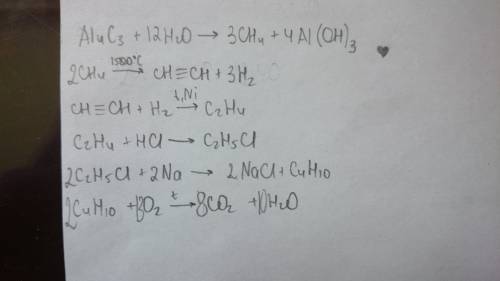 Al₄C₃ + 12H₂O → 3CH₄ + 4Al(OH)₃
2CH₄ 1500°C→ CH≡CH + 3H₂
CH≡CH + H₂ t,Ni→ C₂H₄
C₂H₄ + HCl → C₂H₅Cl
2C₂H₅Cl + 2Na → 2NaCl + C₄H₁₀
2C₄H₁₀ + 13O₂ t→ 8CO₂ + 10H₂O